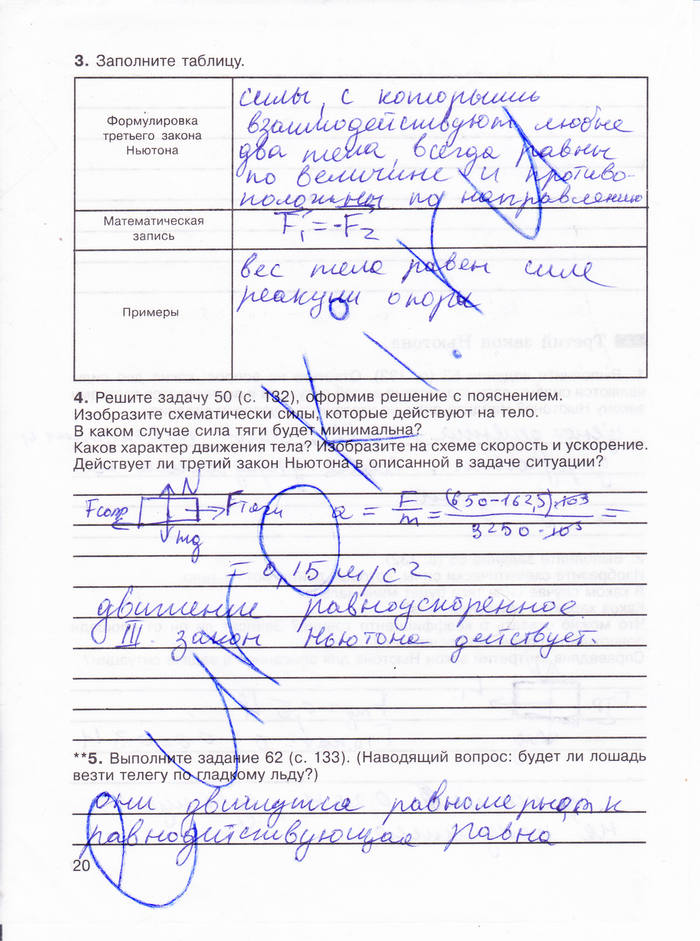 3. Заполните таблицу.
Формулировка
третьего закона
Ньютона
силы, с которыми
взаимодействуют любые
два тела, всегда равны
по величине и противо-
положны по направлению
Математическая
запись
F₁ = -F₂
Примеры
вес тела равен силе
реакции опоры
4. Решите задачу 50 (с. 132), оформив решение с пояснением.
Изобразите схематически силы, которые действуют на тело.
В каком случае сила тяги будет минимальна?
Каков характер движения тела? Изобразите на схеме скорость и ускорение.
Действует ли третий закон Ньютона в описанной в задаче ситуации?
N
Fсопр Fтяги
mg
a = F/m = (650-162,5)·10³/3250·10³ =
= 0,15 м/с2
движение равноускоренное
III закон Ньютона действует.
**5. Выполните задание 62 (с. 133). (Наводящий вопрос: будет ли лошадь
везти телегу по гладкому льду?)
они движутся равномерно т к
равнодействующая равна
20